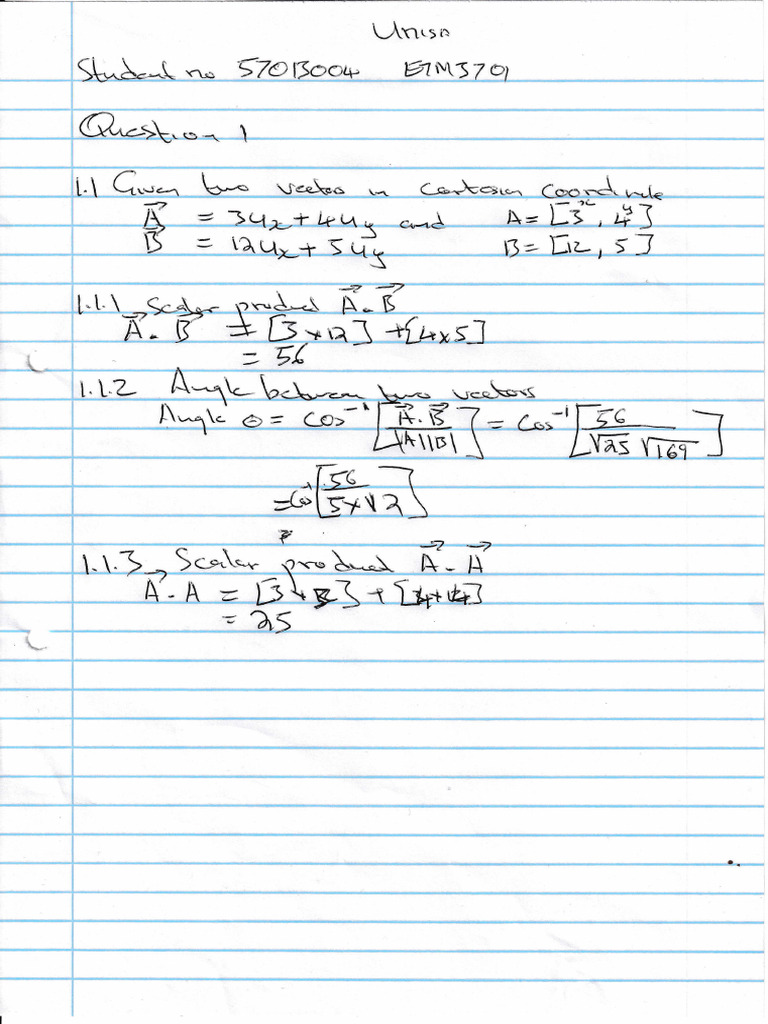 Unisa
Student no 57013004 ETM3701
Question 1
1.1 Given two vectors in cartesian coordinate
A⃗ = 3ux + 4uy and A = [3ˣ, 4ʸ]
B⃗ = 12ux + 5uy B = [12, 5]
1.1.1 Scalar product A⃗ . B⃗
A⃗ . B⃗ = [3 x 12] + [4 x 5]
= 56
1.1.2 Angle between two vectors
Angle θ = cos⁻¹ [A⃗.B⃗ / |A||B|] = cos⁻¹ [56 / √25 √169]
= cos⁻¹ [56 / 5x√2]
1.1.3 Scalar product A⃗ . A⃗
A⃗ . A = [3 x 3] + [4 x 4]
= 25